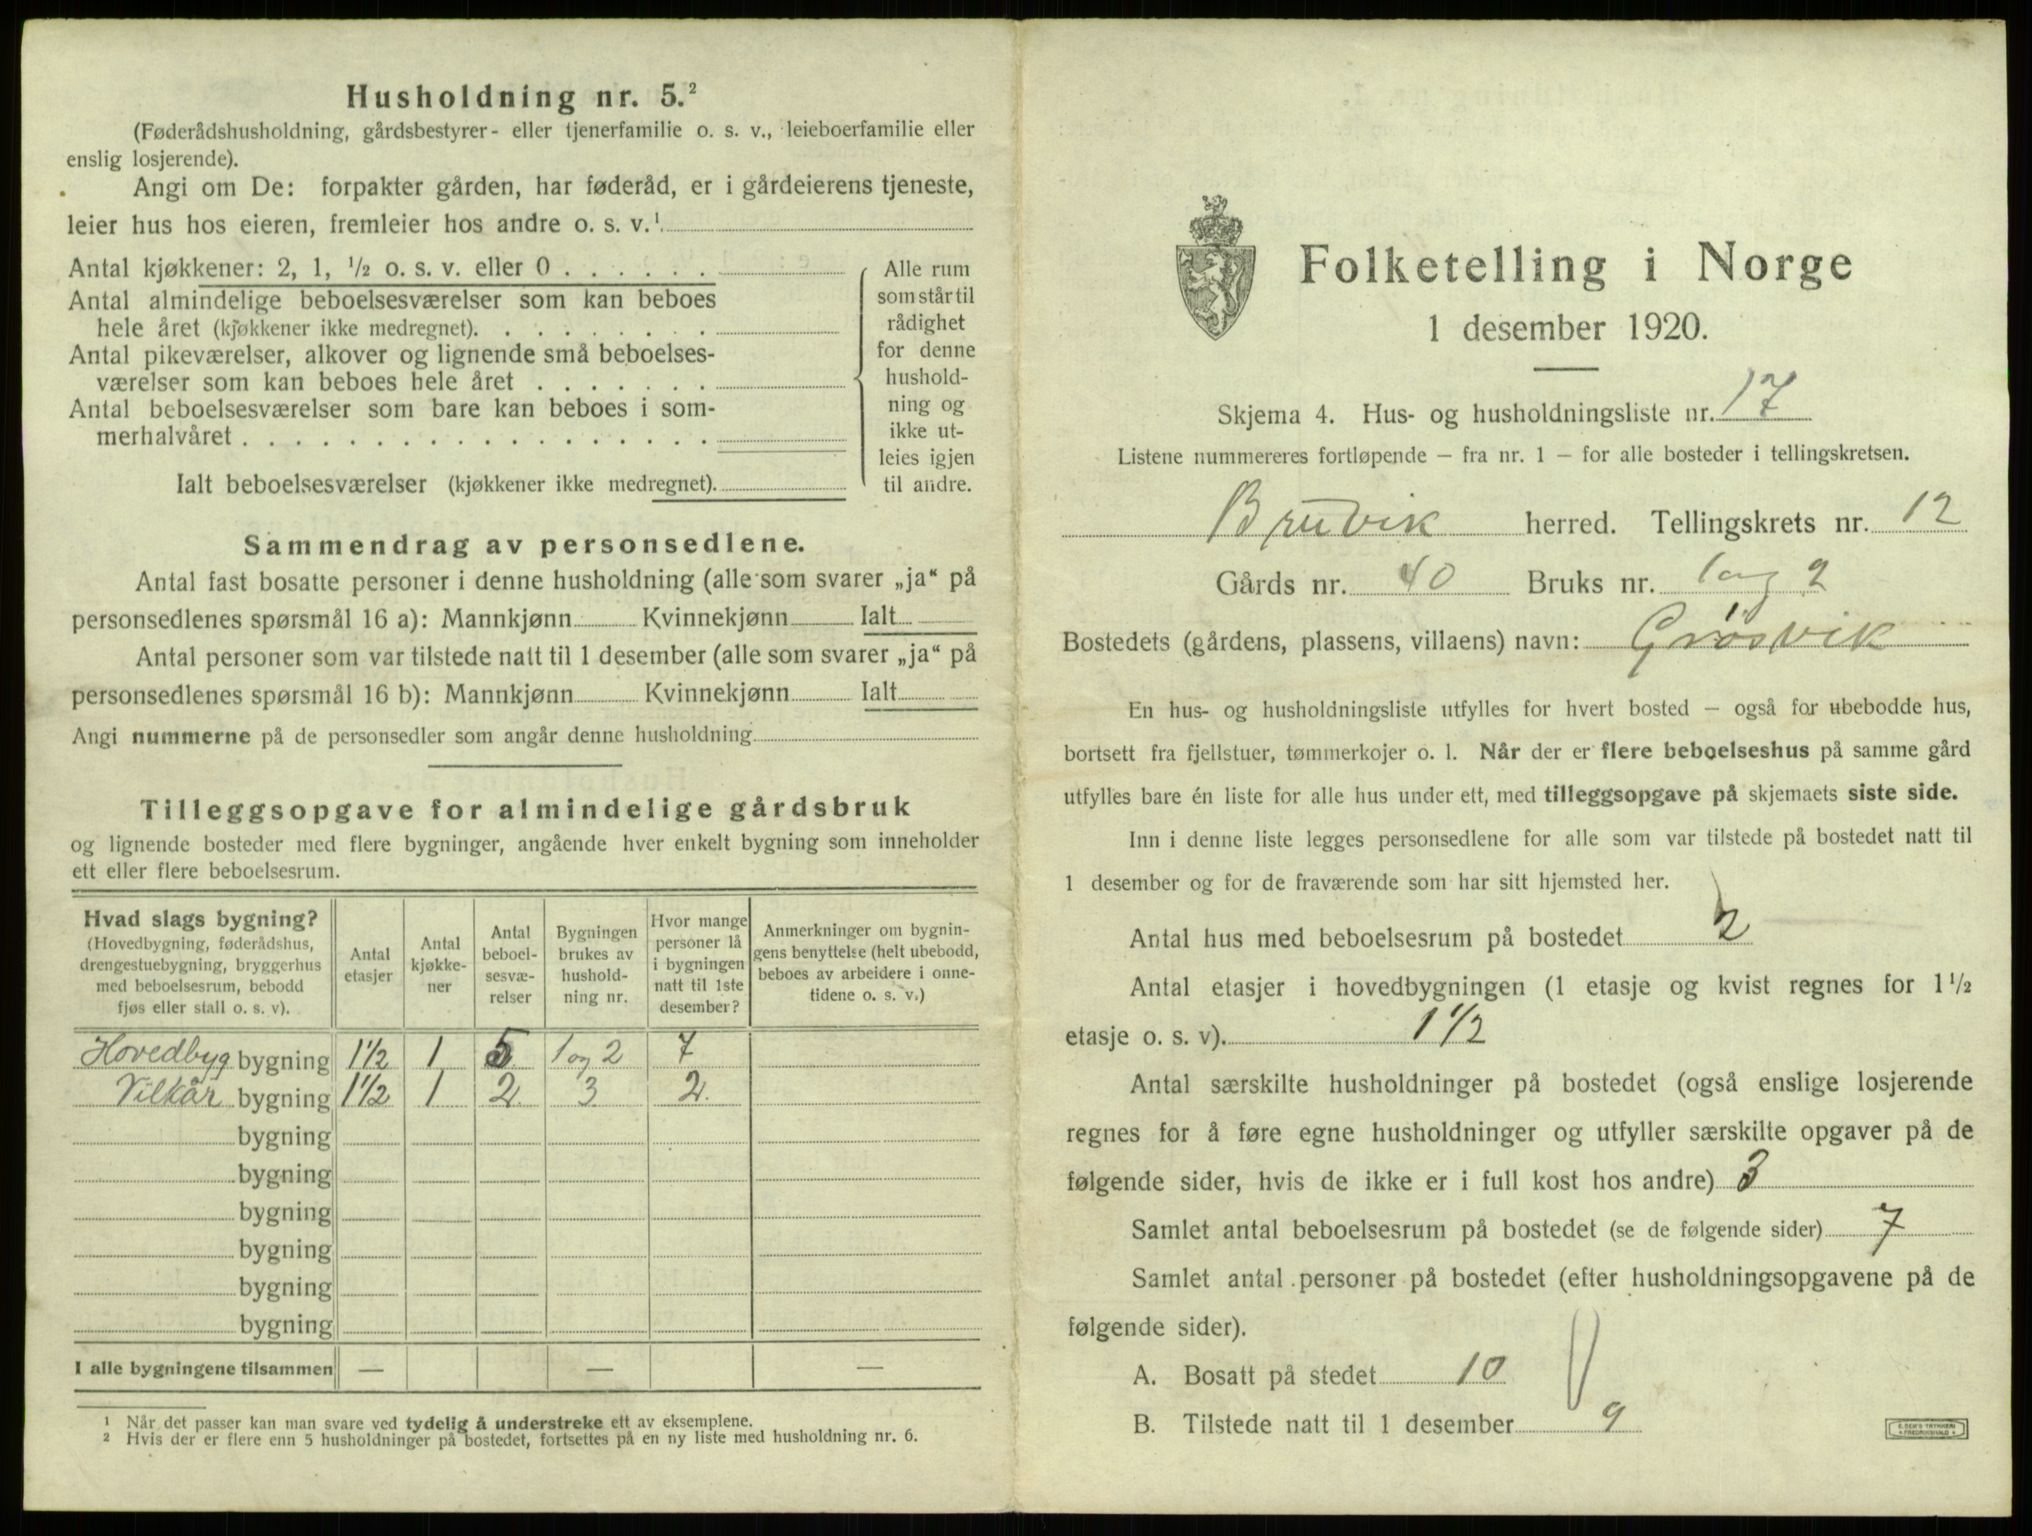 Husholdning nr. 5.²
(Føderådshusholdning, gårdsbestyrer- eller tjenerfamilie o. s. v., leieboerfamilie eller
enslig losjerende).
Angi om De: forpakter gården, har føderåd, er i gårdeierens tjeneste,
leier hus hos eieren, fremleier hos andre o. s. v.¹
Antal kjøkkener: 2, 1, ½ o. s. v. eller 0 . . . . . .
Antal almindelige beboelsesværelser som kan beboes
hele året (kjøkkener ikke medregnet). . . . . . . . .
Antal pikeværelser, alkover og lignende små beboelses-
værelser som kan beboes hele året . . . . . . .
Antal beboelsesværelser som bare kan beboes i som-
merhalvåret . . . . . . . . . . . . . . . . . .
Ialt beboelsesværelser (kjøkkener ikke medregnet).
Alle rum
som står til
rådighet
for denne
hushold-
ning og
ikke ut-
leies igjen
til andre.
Sammendrag av personsedlene.
Antal fast bosatte personer i denne husholdning (alle som svarer „ja“ på
personsedlenes spørsmål 16 a): Mannkjønn Kvinnekjønn Ialt
Antal personer som var tilstede natt til 1 desember (alle som svarer „ja“ på
personsedlenes spørsmål 16 b): Mannkjønn Kvinnekjønn Ialt
Angi nummerne på de personsedler som angår denne husholdning
Tilleggsopgave for almindelige gårdsbruk
og lignende bosteder med flere bygninger, angående hver enkelt bygning som inneholder
ett eller flere beboelsesrum.
Hvad slags bygning?
(Hovedbygning, føderådshus,
drengestuebygning, bryggerhus
med beboelsesrum, bebodd
fjøs eller stall o. s. v).
Antal
etasjer
Antal
kjøkke-
ner
Antal
beboel-
sesvæ-
relser
Bygningen
brukes av
hushold-
ning nr.
Hvor mange
personer lå
i bygningen
natt til 1ste
desember?
Anmerkninger om bygnin-
gens benyttelse (helt ubebodd,
beboes av arbeidere i onne-
tidene o. s. v.)
Hovedbyg bygning 1½ 1 5 1 og 2 7
Vilkår bygning 1½ 1 2 3 2
bygning
bygning
bygning
bygning
bygning
bygning
I alle bygningene tilsammen — — —
¹ Når det passer kan man svare ved tydelig å understreke ett av eksemplene.
² Hvis der er flere enn 5 husholdninger på bostedet, fortsettes på en ny liste med husholdning nr. 6.
Folketelling i Norge
1 desember 1920.
Skjema 4. Hus- og husholdningsliste nr. 17
Listene nummereres fortløpende — fra nr. 1 — for alle bosteder i tellingskretsen.
Bruvik herred. Tellingskrets nr. 12
Gårds nr. 40 Bruks nr. 1 og 2
Bostedets (gårdens, plassens, villaens) navn: Grøsvik
En hus- og husholdningsliste utfylles for hvert bosted — også for ubebodde hus,
bortsett fra fjellstuer, tømmerkojer o. l. Når der er flere beboelseshus på samme gård
utfylles bare én liste for alle hus under ett, med tilleggsopgave på skjemaets siste side.
Inn i denne liste legges personsedlene for alle som var tilstede på bostedet natt til
1 desember og for de fraværende som har sitt hjemsted her.
Antal hus med beboelsesrum på bostedet 2
Antal etasjer i hovedbygningen (1 etasje og kvist regnes for 1½
etasje o. s. v). 1½
Antal særskilte husholdninger på bostedet (også enslige losjerende
regnes for å føre egne husholdninger og utfyller særskilte opgaver på de
følgende sider, hvis de ikke er i full kost hos andre) 3
Samlet antal beboelsesrum på bostedet (se de følgende sider) 7
Samlet antal personer på bostedet (efter husholdningsopgavene på de
følgende sider).
A. Bosatt på stedet 10
B. Tilstede natt til 1 desember 9